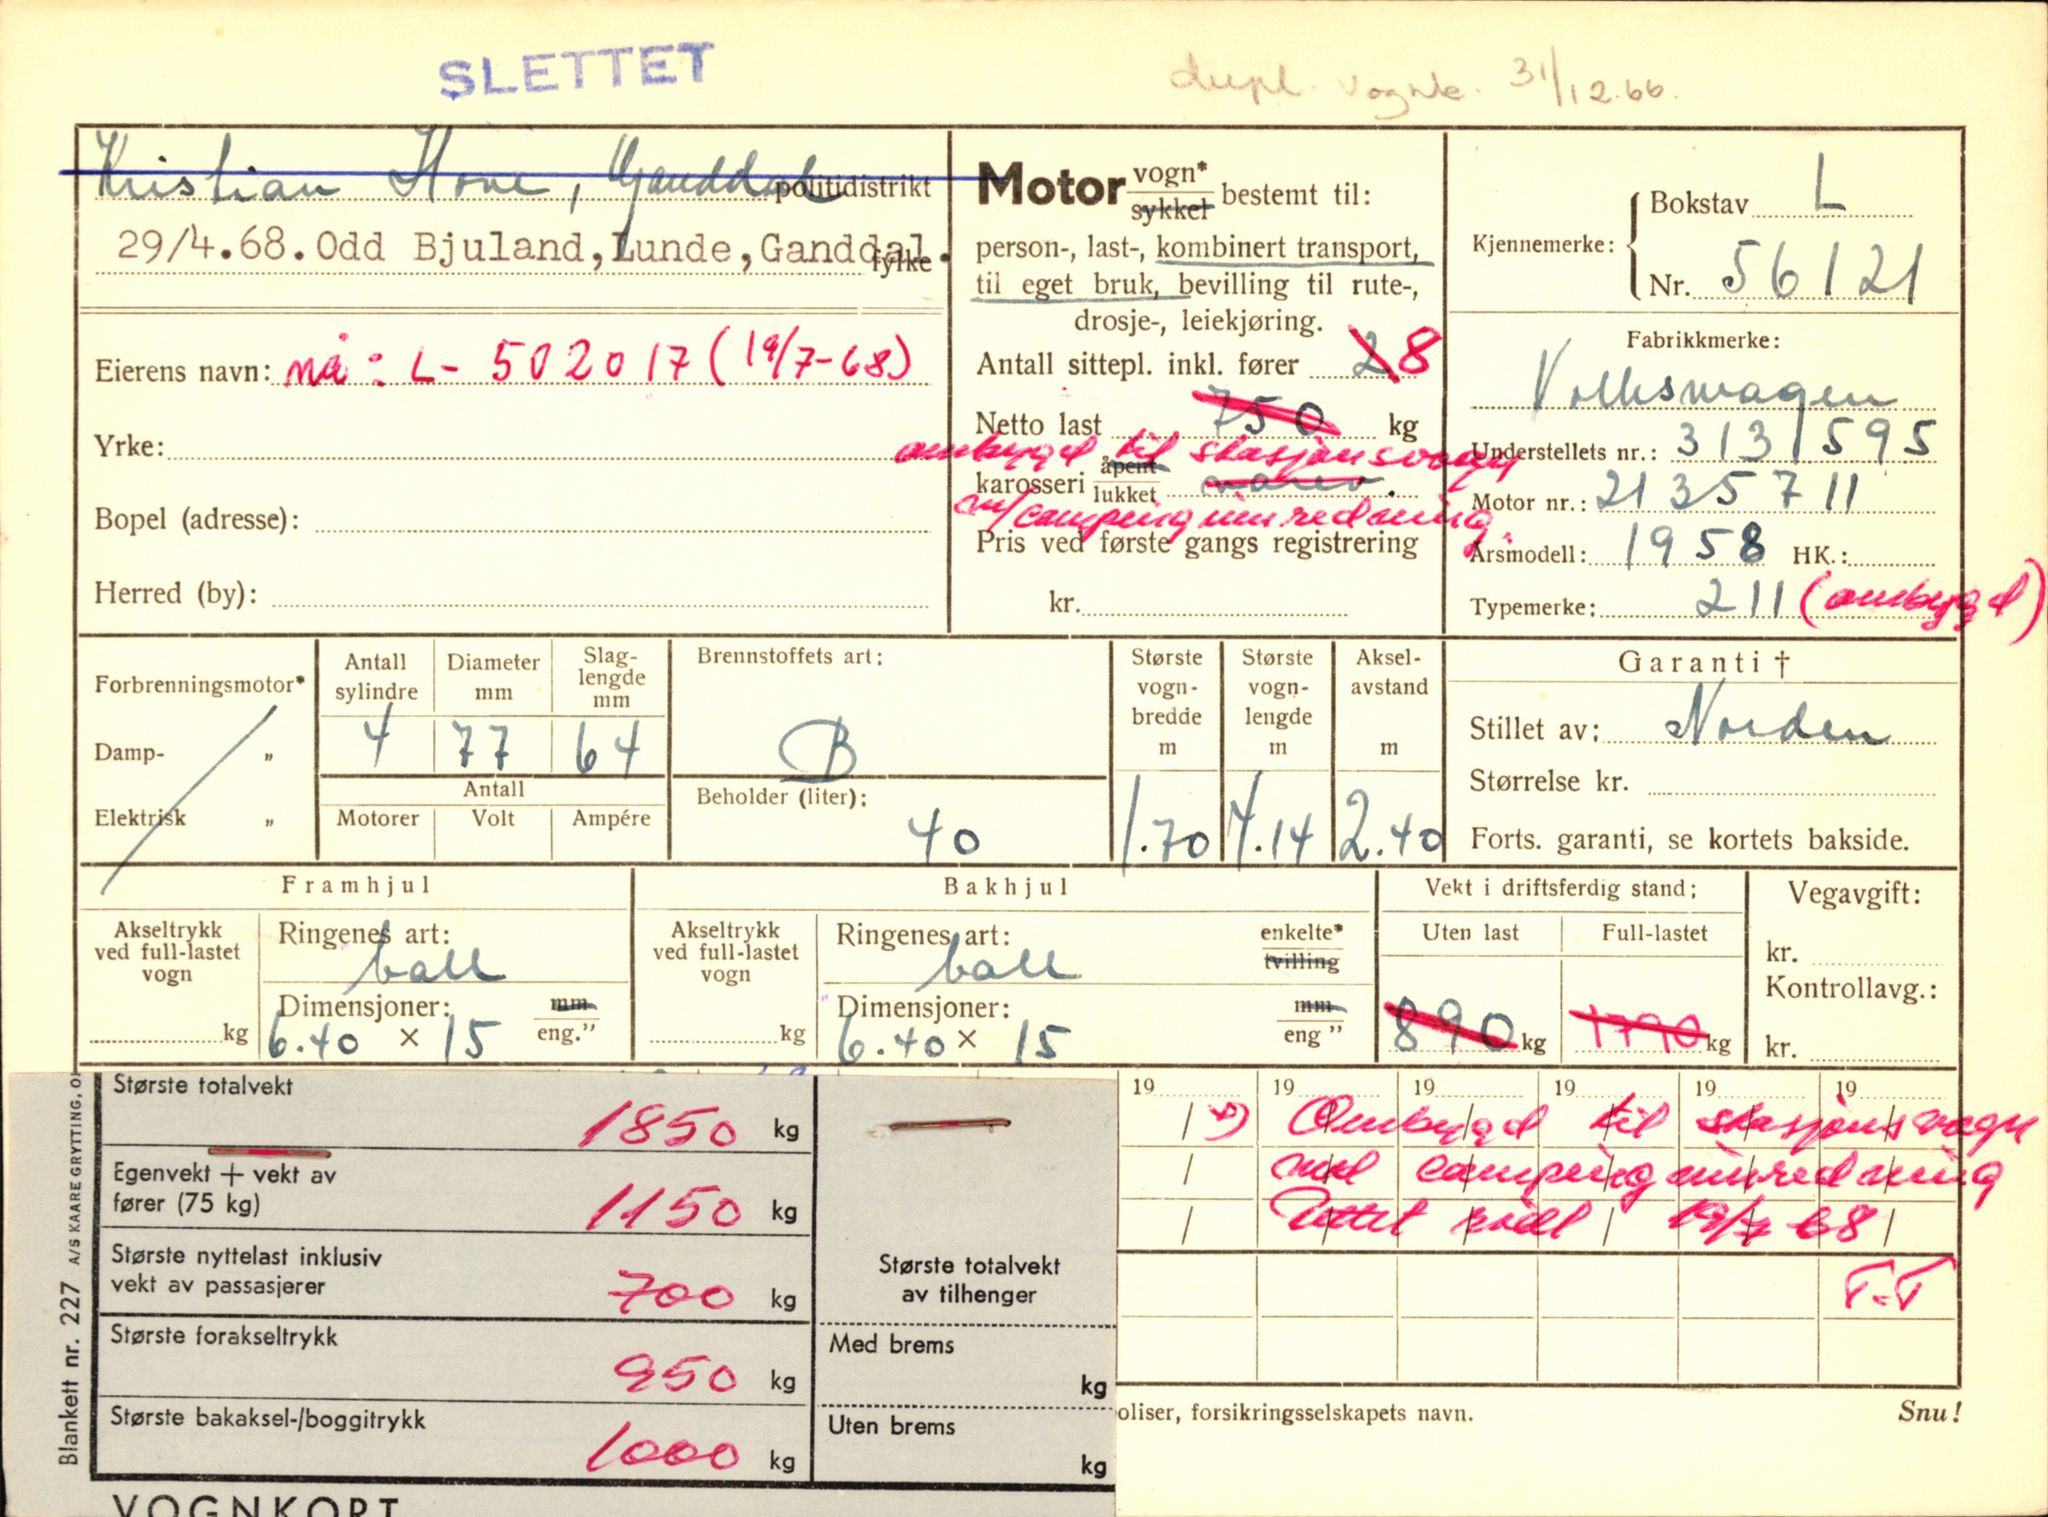 SLETTET
dupl. vognk. 31/12.66.
Kristian Hove, Ganddal politidistrikt
29/4.68. Odd Bjuland, Lunde, Ganddal. fylke
Eierens navn: nå: L- 502017 (19/7-68)
Yrke:
Bopel (adresse):
Herred (by):
Motor vogn* sykkel bestemt til:
person-, last-, kombinert transport,
til eget bruk, bevilling til rute-,
drosje-, leiekjøring.
Antall sittepl. inkl. fører 2 8
Netto last 750 kg
ombygd til stasjonsvogn
karosseri åpent lukket varev.
m/campinginnredning
Pris ved første gangs registrering
kr.
Kjennemerke: Bokstav L
Nr. 56121
Fabrikkmerke:
Volkswagen
Understellets nr.: 3131595
Motor nr.: 2135711
Årsmodell: 1958 HK.:
Typemerke: 211 (ombygd)
Forbrenningsmotor*
Damp- „
Elektrisk „
Antall sylindre 4
Diameter mm 77
Slag-
lengde
mm 64
Antall
Motorer Volt Ampére
Brennstoffets art:
B
Beholder (liter):
40
Største
vogn-
bredde
m
1.70
Største
vogn-
lengde
m
4.14
Aksel-
avstand
m
2.40
Garanti †
Stillet av: Norden
Størrelse kr.
Forts. garanti, se kortets bakside.
Framhjul
Akseltrykk
ved full-lastet
vogn
kg
Ringenes art:
ball
Dimensjoner: mm
6.40 × 15 eng.”
Bakhjul
Akseltrykk
ved full-lastet
vogn
kg
Ringenes art: enkelte*
ball tvilling
Dimensjoner: mm
6.40 × 15 eng ”
Vekt i driftsferdig stand:
Uten last Full-lastet
890 kg 1790 kg
Vegavgift:
kr.
Kontrollavg.:
kr.
Største totalvekt
1850 kg
Egenvekt + vekt av
fører (75 kg) 1150 kg
Største nyttelast inklusiv
vekt av passasjerer 700 kg
Største forakseltrykk
950 kg
Største bakaksel-/boggitrykk
1000 kg
Største totalvekt
av tilhenger
Med brems
kg
Uten brems
kg
Blankett nr. 227 A/S KAARE GRYTTING, O
VOGNKORT
19 19 19 19 19 19
x) Ombygd til stasjonsvogn
med campinginnredning
19/7 68
T.T
oliser, forsikringsselskapets navn.
Snu!